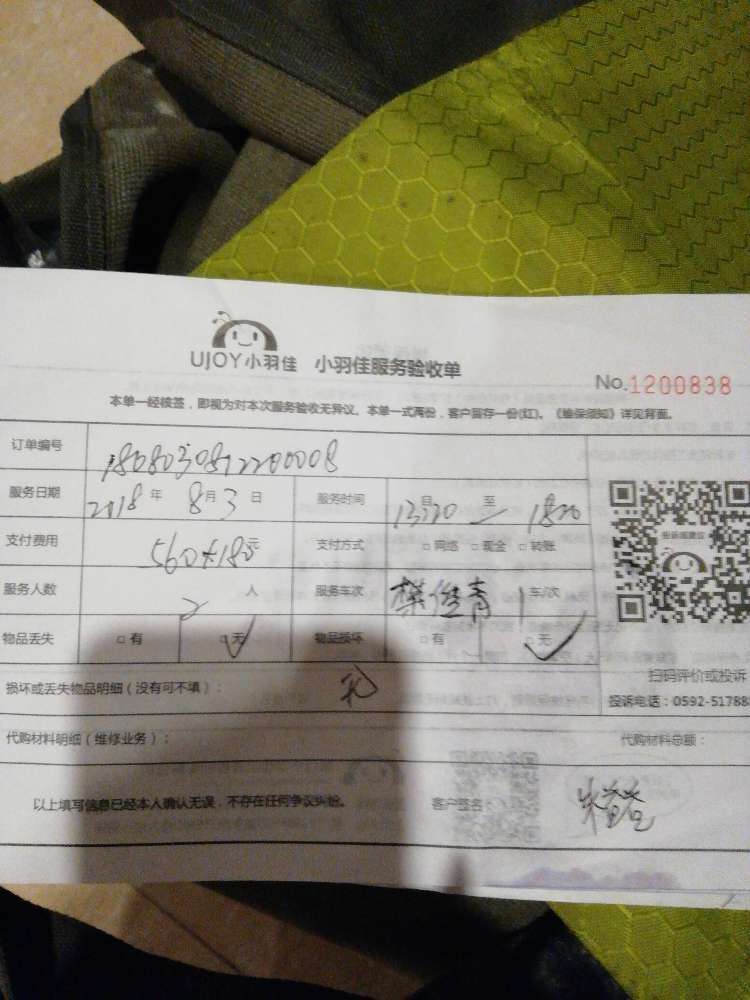 UJOY小羽佳 小羽佳服务验收单
No.1200838
本单一经核签，即视为对本次服务验收无异议。本单一式两份，客户留存一份(红)。《维保须知》详见背面。
订单编号 1808030812200008
服务日期 2018年8月3日 服务时间 13:20 至 18:20
支付费用 560+180元 支付方式 □网络 □现金 □转账
服务人数 2人 服务车次 樊俊青 1车/次
物品丢失 □有 □无✓ 物品损坏 □有 □无✓
扫码评价或投诉
损坏或丢失物品明细（没有可不填）： 无
投诉电话：0592-51788
代购材料明细（维修业务）： 代购材料总额：
以上填写信息已经本人确认无误，不存在任何争议纠纷。 客户签名：